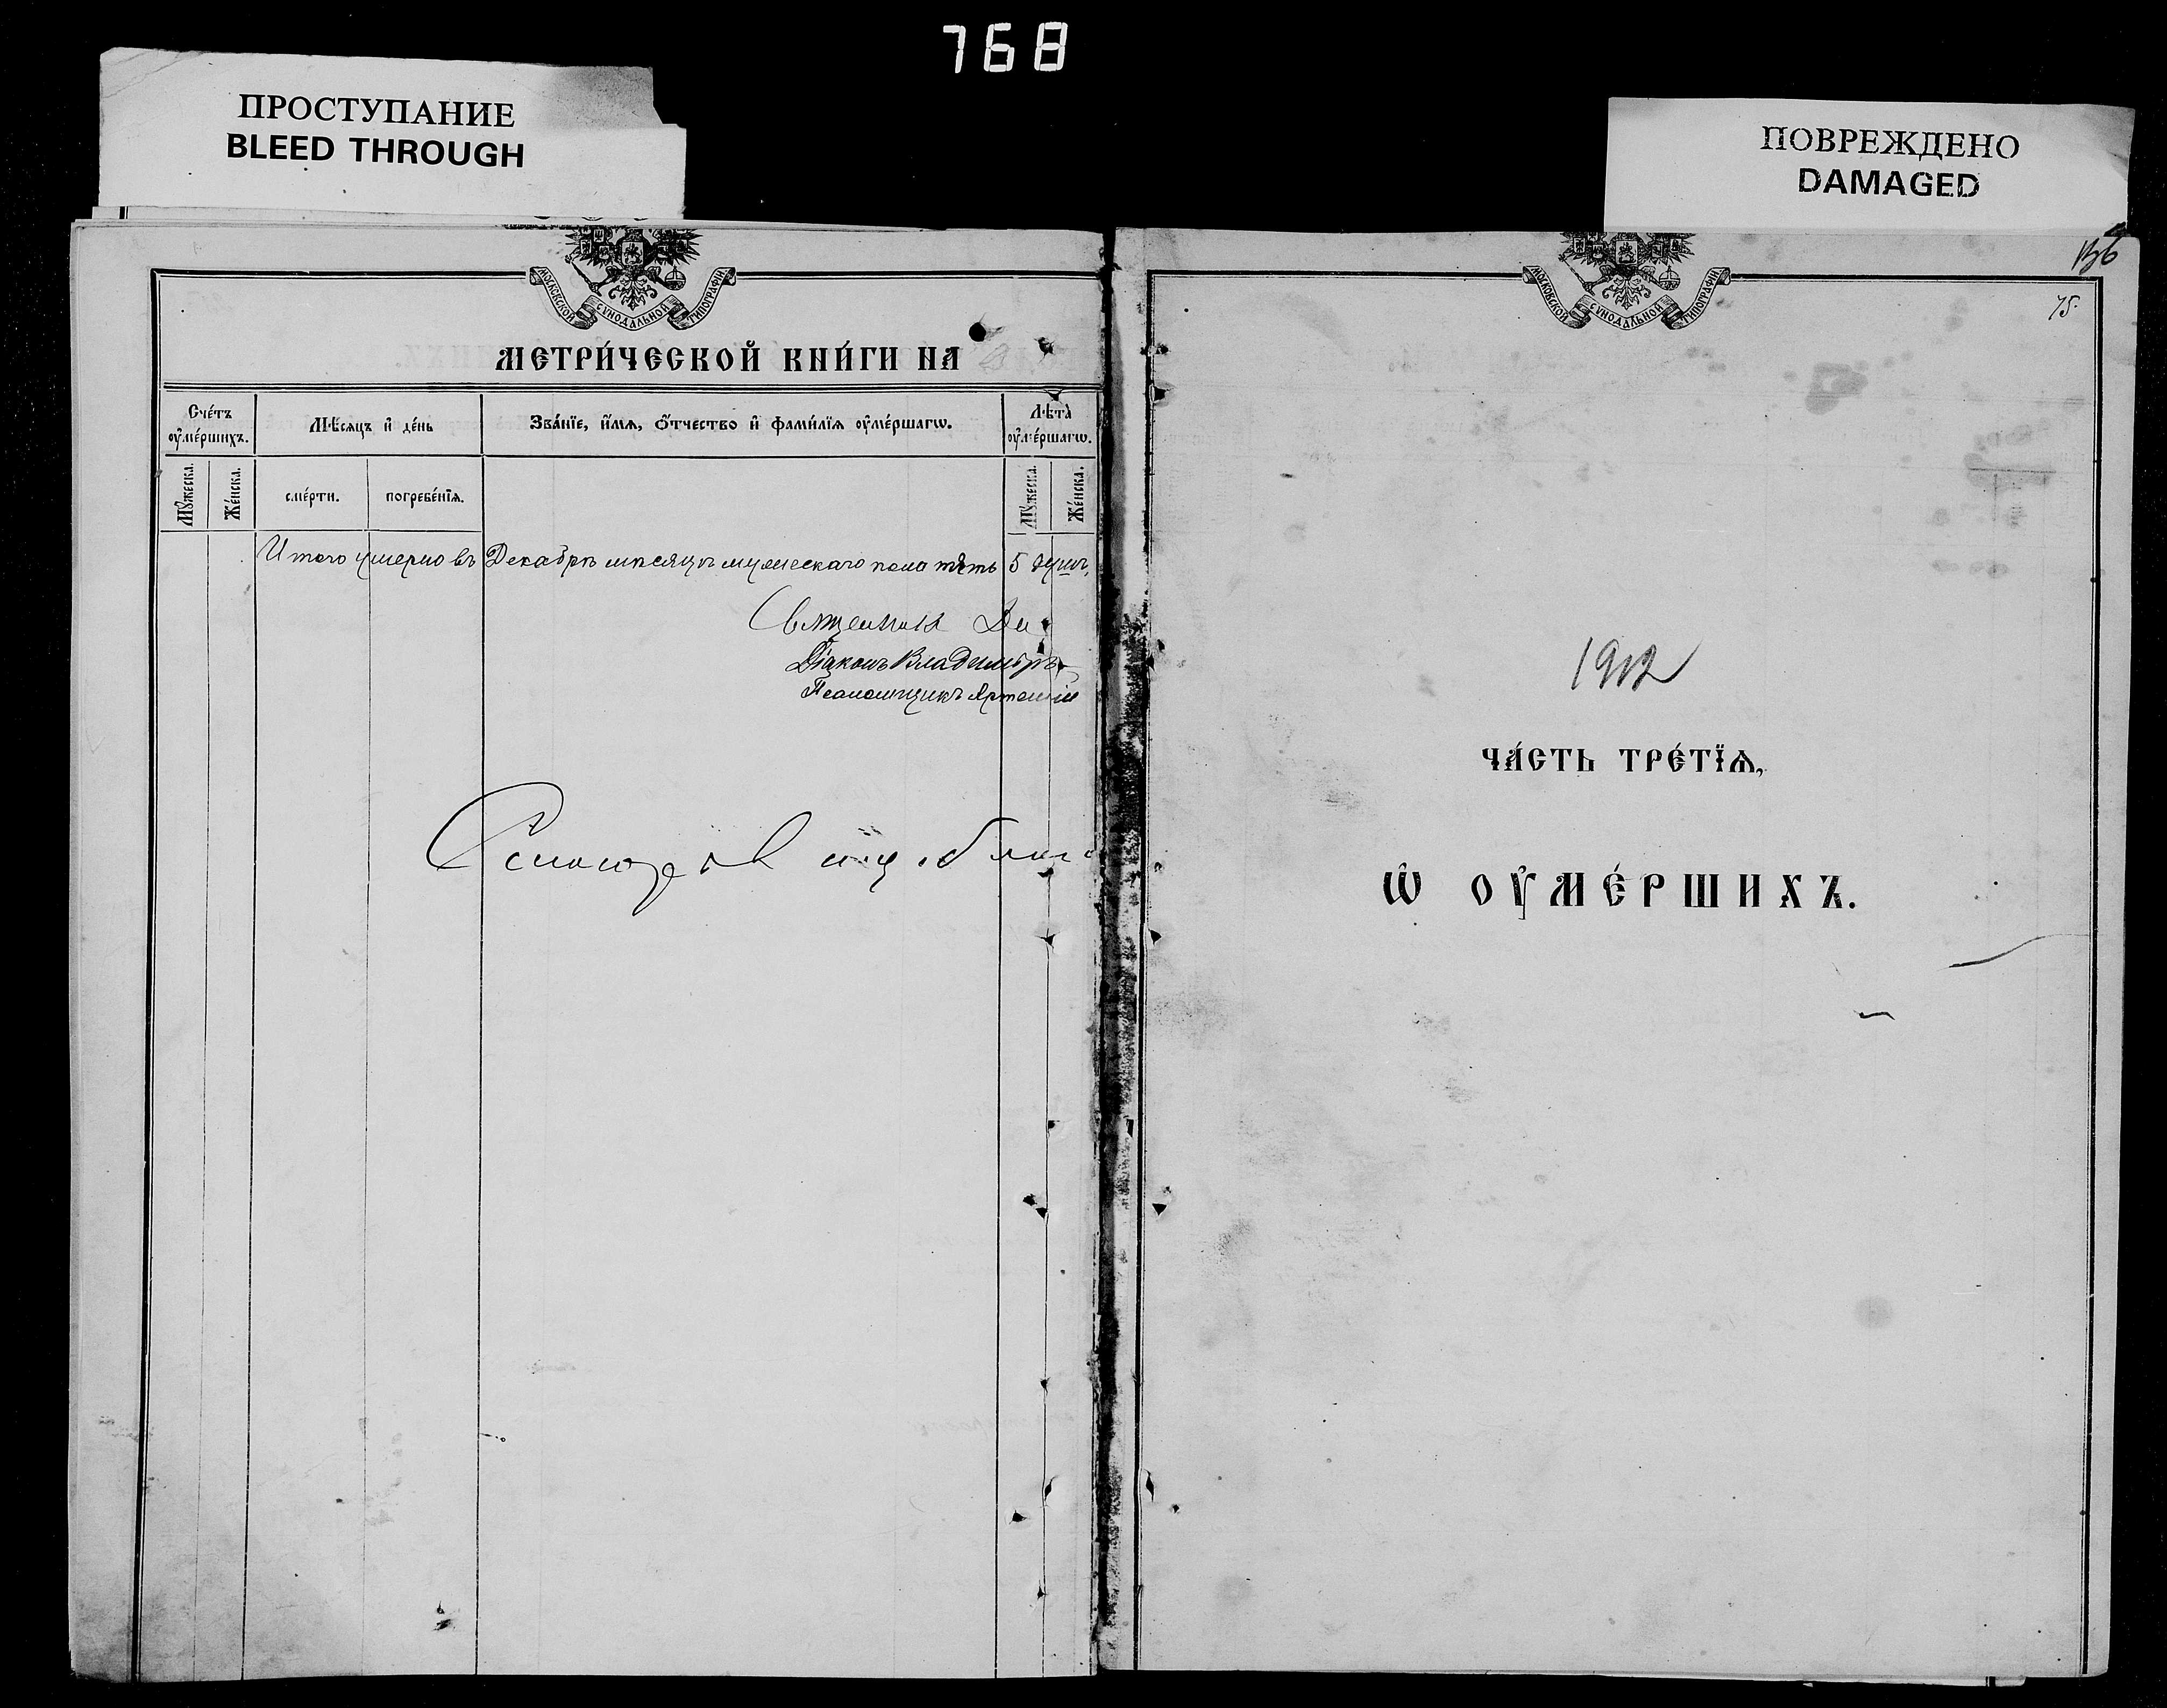 768
ПРОСТУПАНИЕ
BLEED THROUGH
ПОВРЕЖДЕНО
DAMAGED
МОСКОВСКОЙ СѴНОДАЛЬНОЙ ТИПОГРАФІИ
МЕТРИ́ЧЕСКОЙ КНИ́ГИ НА
Сче́тъ оу҆ме́ршихъ.
Мѣ́сяцъ и҆ де́нь
Зва́нїе, и҆́мѧ, ѻ҆́тчество и҆ фами́лїѧ оу҆ме́ршагѡ.
Лѣ́та оу҆ме́ршагѡ.
Мꙋ́жеска.
Же́нска.
сме́рти.
погребе́нїѧ.
Мꙋ́жеска.
Же́нска.
Итого умерло въ Декабрѣ мѣсяцѣ мужескаго пола пять 5 душъ,
Священникъ
Діаконъ Владиміръ
Псаломщикъ Артемій
МОСКОВСКОЙ СѴНОДАЛЬНОЙ ТИПОГРАФІИ
75.
1912
ЧА́СТЬ ТРЕ́ТЇѦ,
Ѡ҆ ОУ҆МЕ́РШИХЪ.